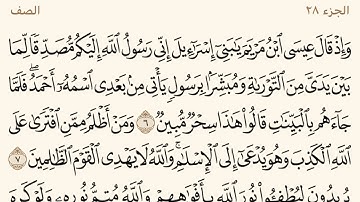 الجزء ٢٨ الصف
وَإِذْ قَالَ عِيسَى ٱبْنُ مَرْيَمَ يَٰبَنِىٓ إِسْرَٰٓءِيلَ إِنِّى رَسُولُ ٱللَّهِ إِلَيْكُم مُّصَدِّقًا لِّمَا
بَيْنَ يَدَىَّ مِنَ ٱلتَّوْرَىٰةِ وَمُبَشِّرًۢا بِرَسُولٍ يَأْتِى مِنۢ بَعْدِى ٱسْمُهُۥٓ أَحْمَدُ ۖ فَلَمَّا
جَآءَهُم بِٱلْبَيِّنَٰتِ قَالُوا۟ هَٰذَا سِحْرٌ مُّبِينٌ ٦ وَمَنْ أَظْلَمُ مِمَّنِ ٱفْتَرَىٰ عَلَى
ٱللَّهِ ٱلْكَذِبَ وَهُوَ يُدْعَىٰٓ إِلَى ٱلْإِسْلَٰمِ ۚ وَٱللَّهُ لَا يَهْدِى ٱلْقَوْمَ ٱلظَّٰلِمِينَ ٧
يُرِيدُونَ لِيُطْفِـُٔوا۟ نُورَ ٱللَّهِ بِأَفْوَٰهِهِمْ وَٱللَّهُ مُتِمُّ نُورِهِۦ وَلَوْ كَرِهَ